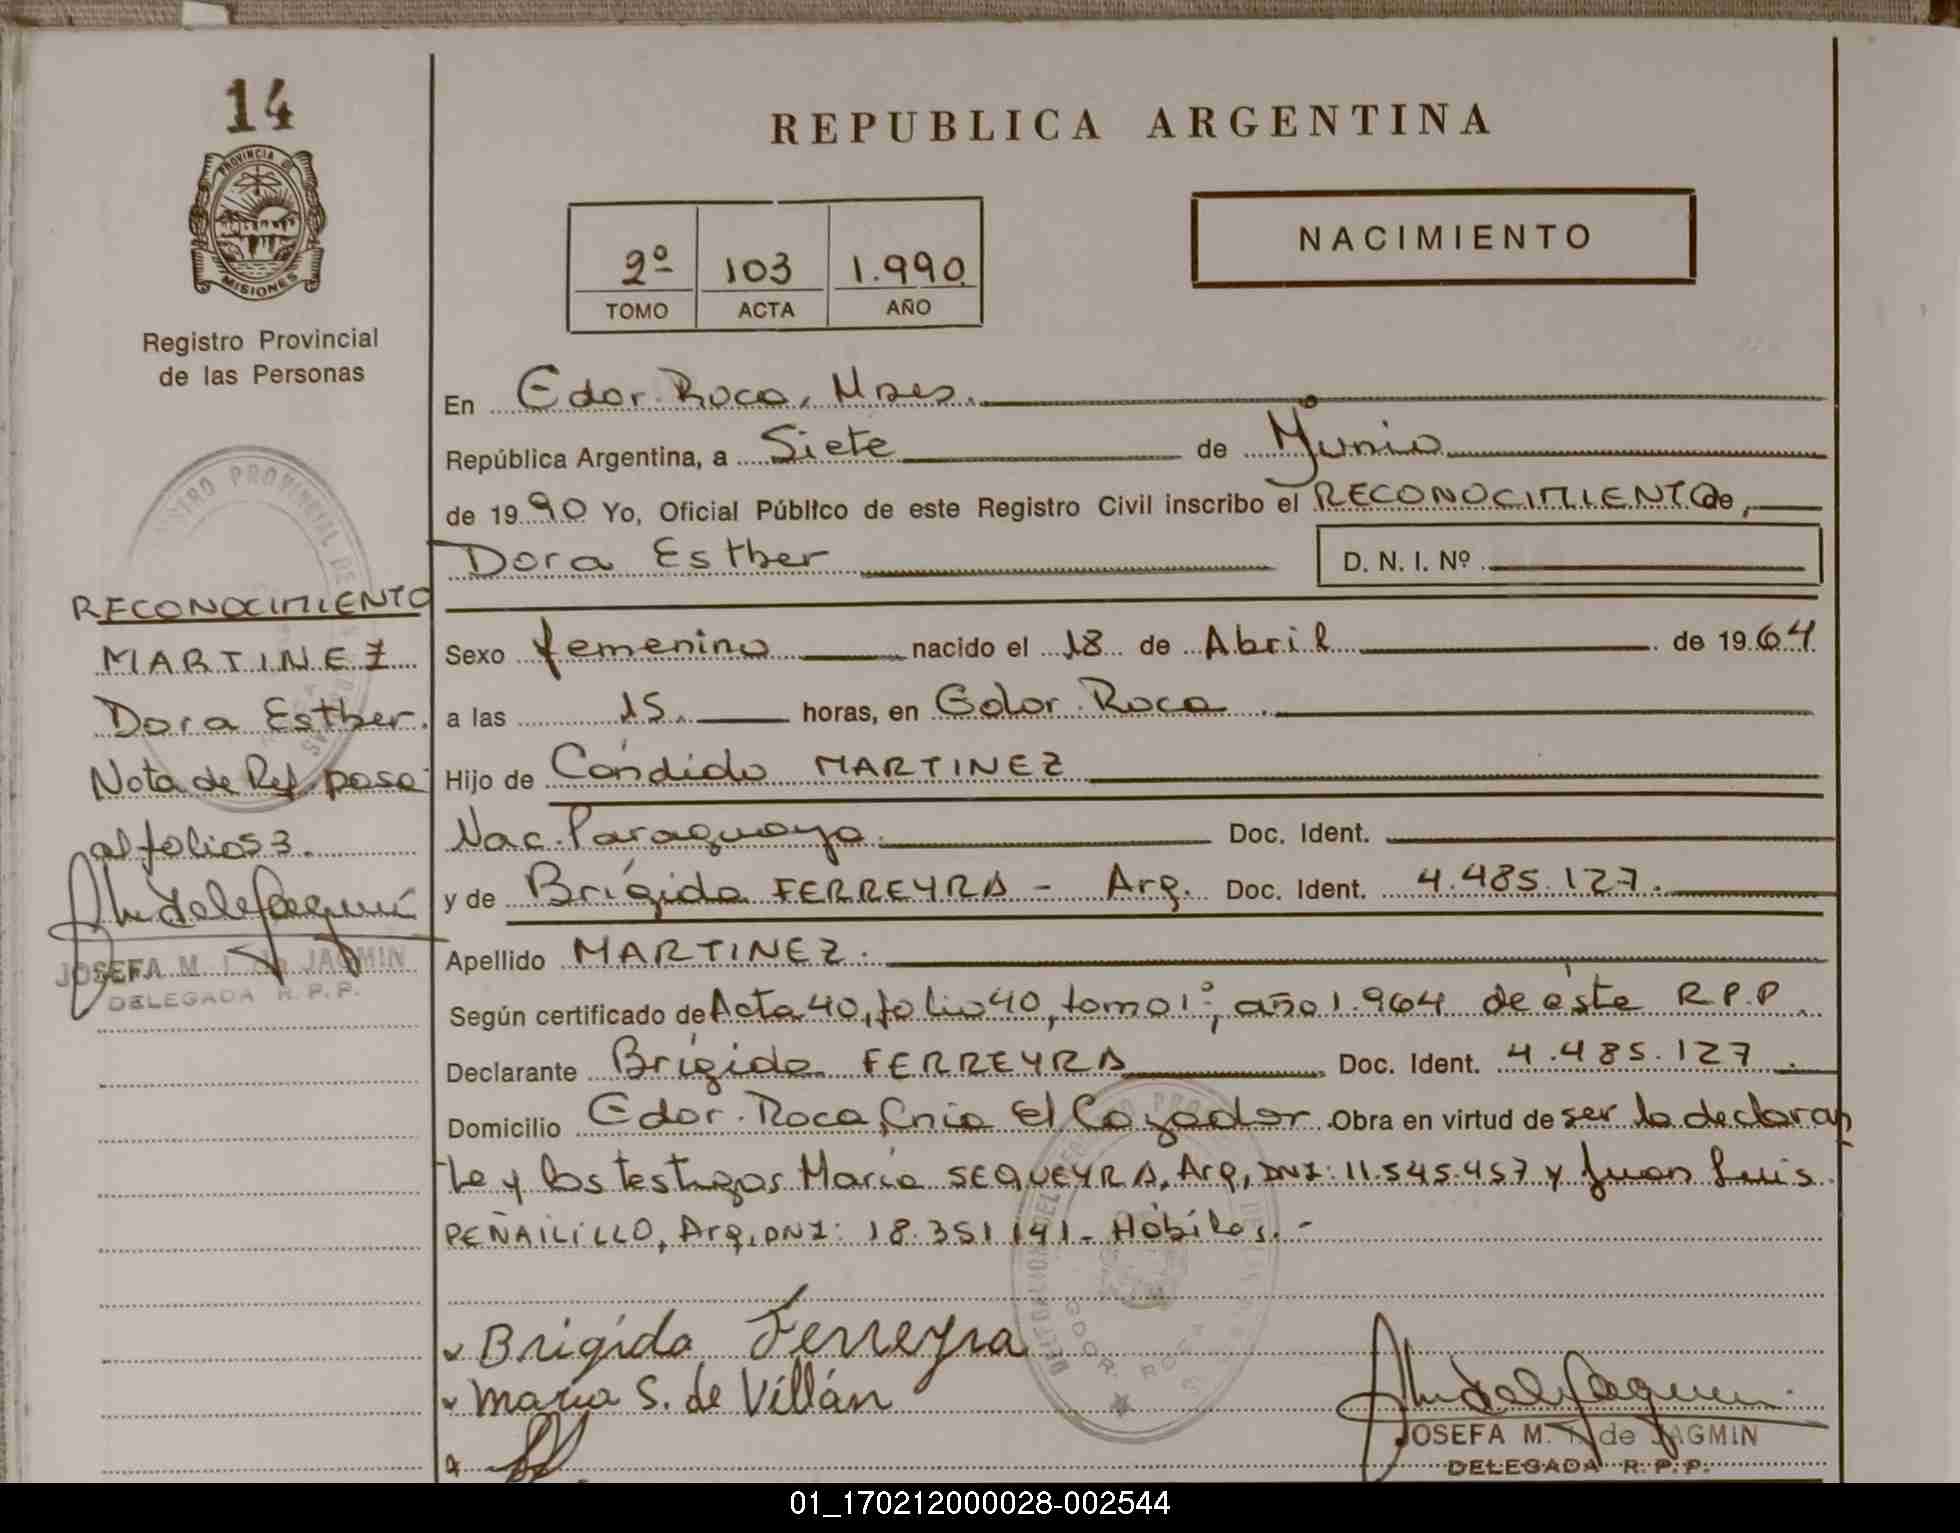 14
PROVINCIA DE
MISIONES
Registro Provincial
de las Personas
REPUBLICA ARGENTINA
2º 103 1.990
TOMO ACTA AÑO
NACIMIENTO
En Gdor. Roca, Mnes.
República Argentina, a Siete de Junio
de 1990 Yo, Oficial Público de este Registro Civil inscribo el RECONOCIMIENTO de,
Dora Esther D. N. I. Nº
Sexo femenino nacido el 18 de Abril de 1964
a las 15. horas, en Gdor. Roca
Hijo de Cándido MARTINEZ
Nac. Paraguaya. Doc. Ident.
y de Brígida FERREYRA - Arg. Doc. Ident. 4.485.127.
Apellido MARTINEZ.
Según certificado de Acta 40, folio 40, tomo 1º, año 1.964 de éste R.P.P.
Declarante Brígida FERREYRA Doc. Ident. 4.485.127.
Domicilio Gdor. Roca, Cnia El Cazador Obra en virtud de ser la declaran
te y los testigos María SEQUEYRA, Arg, DNI: 11.545.457 y Juan Luis
PEÑAILILLO, Arg, DNI: 18.351.141. Hábiles.-
Brigida Ferreyra
maria S. de Villán
JOSEFA M. I. de JAGMIN
DELEGADA R. P. P.
RECONOCIMIENTO
MARTINEZ
Dora Esther.
Nota de Ref. pasa
al folio 53.
JOSEFA M. I. de JAGMIN
DELEGADA R. P. P.
REGISTRO PROVINCIAL DE LAS PERSONAS
GDOR. ROCA
01_170212000028-002544